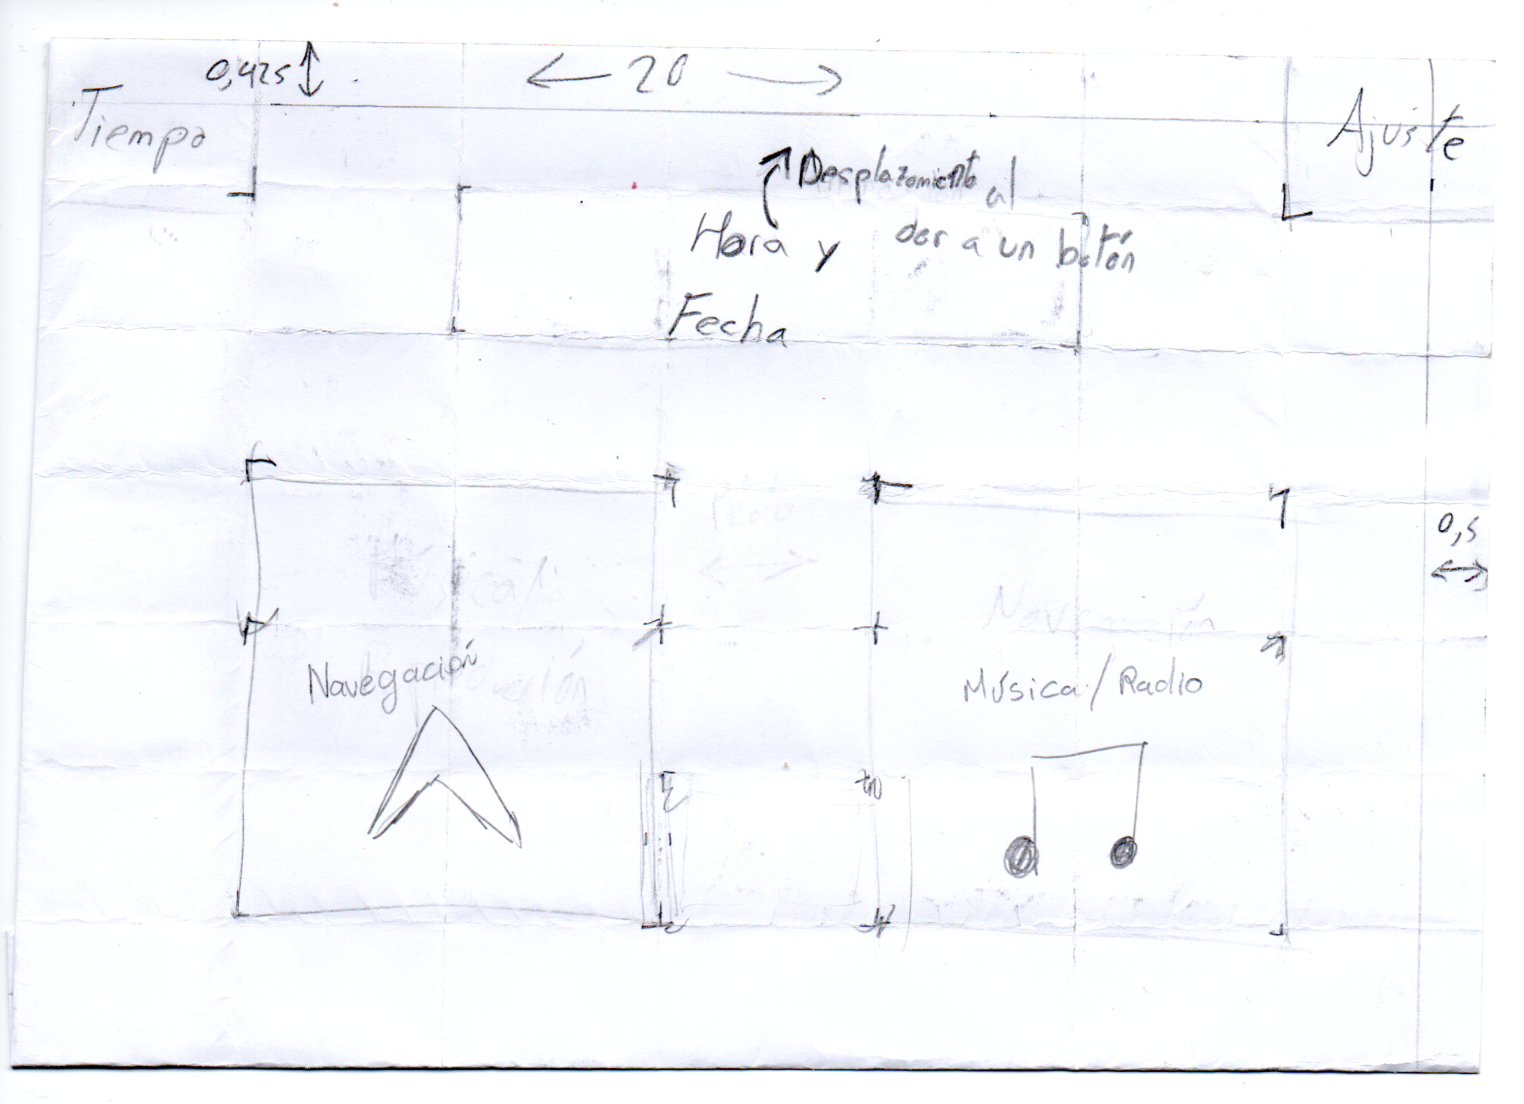 0,425
20
Tiempo
Ajuste
Desplazamiento al
dar a un botón
Hora y
Fecha
0,5
Navegación
Navegación
Música/Radio